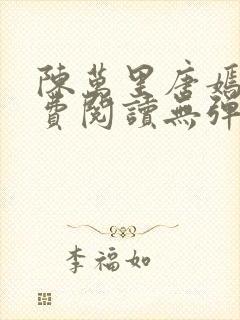 陳萬里唐嫣
費閱讀無彈
李福如